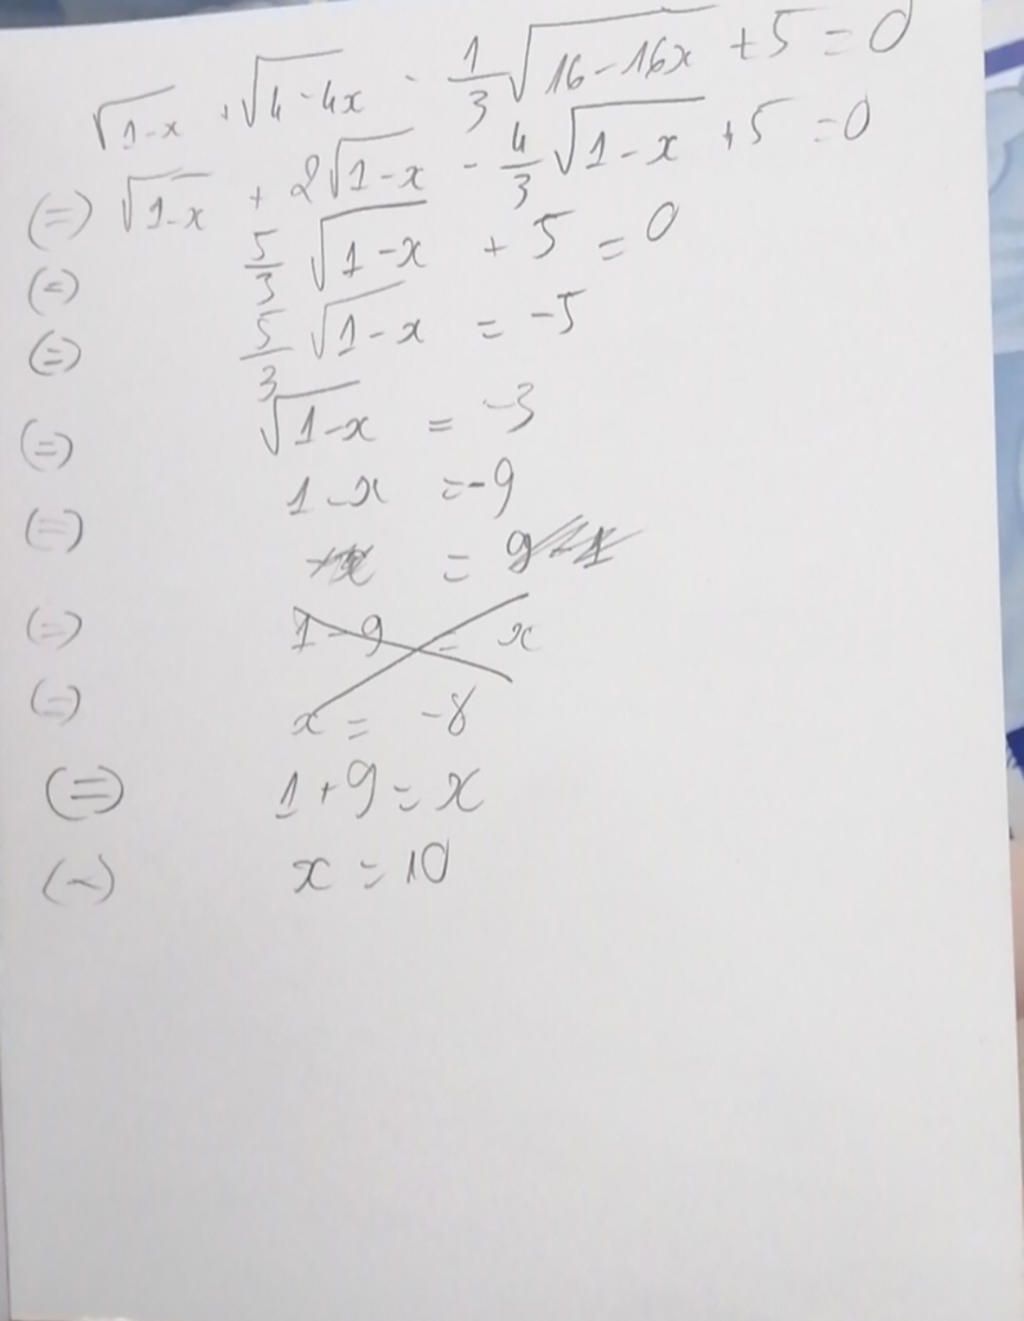 √(1-x) + √(4-4x) - 1/3 √(16-16x) + 5 = 0
(=) √(1-x) + 2√(1-x) - 4/3 √(1-x) + 5 = 0
(=) 5/3 √(1-x) + 5 = 0
(=) 5/3 √(1-x) = -5
(=) √(1-x) = -3
(=) 1-x = -9
= 9
(=) 1-9 = x
(=) x = -8
(=) 1+9 = x
(=) x = 10